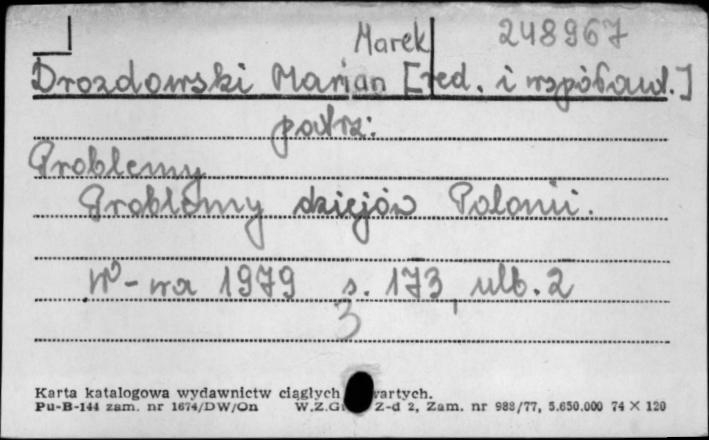 Marek 248967
Drozdowski Marian [red. i współaut.]
patrz:
Problemy
Problemy dziejów Polonii.
W-wa 1979 s. 173, ulb. 2
3
Karta katalogowa wydawnictw ciągłych wartych.
Pu-B-144 zam. nr 1674/DW/On W.Z.G Z-d 2, Zam. nr 988/77, 5.650.000 74 X 120